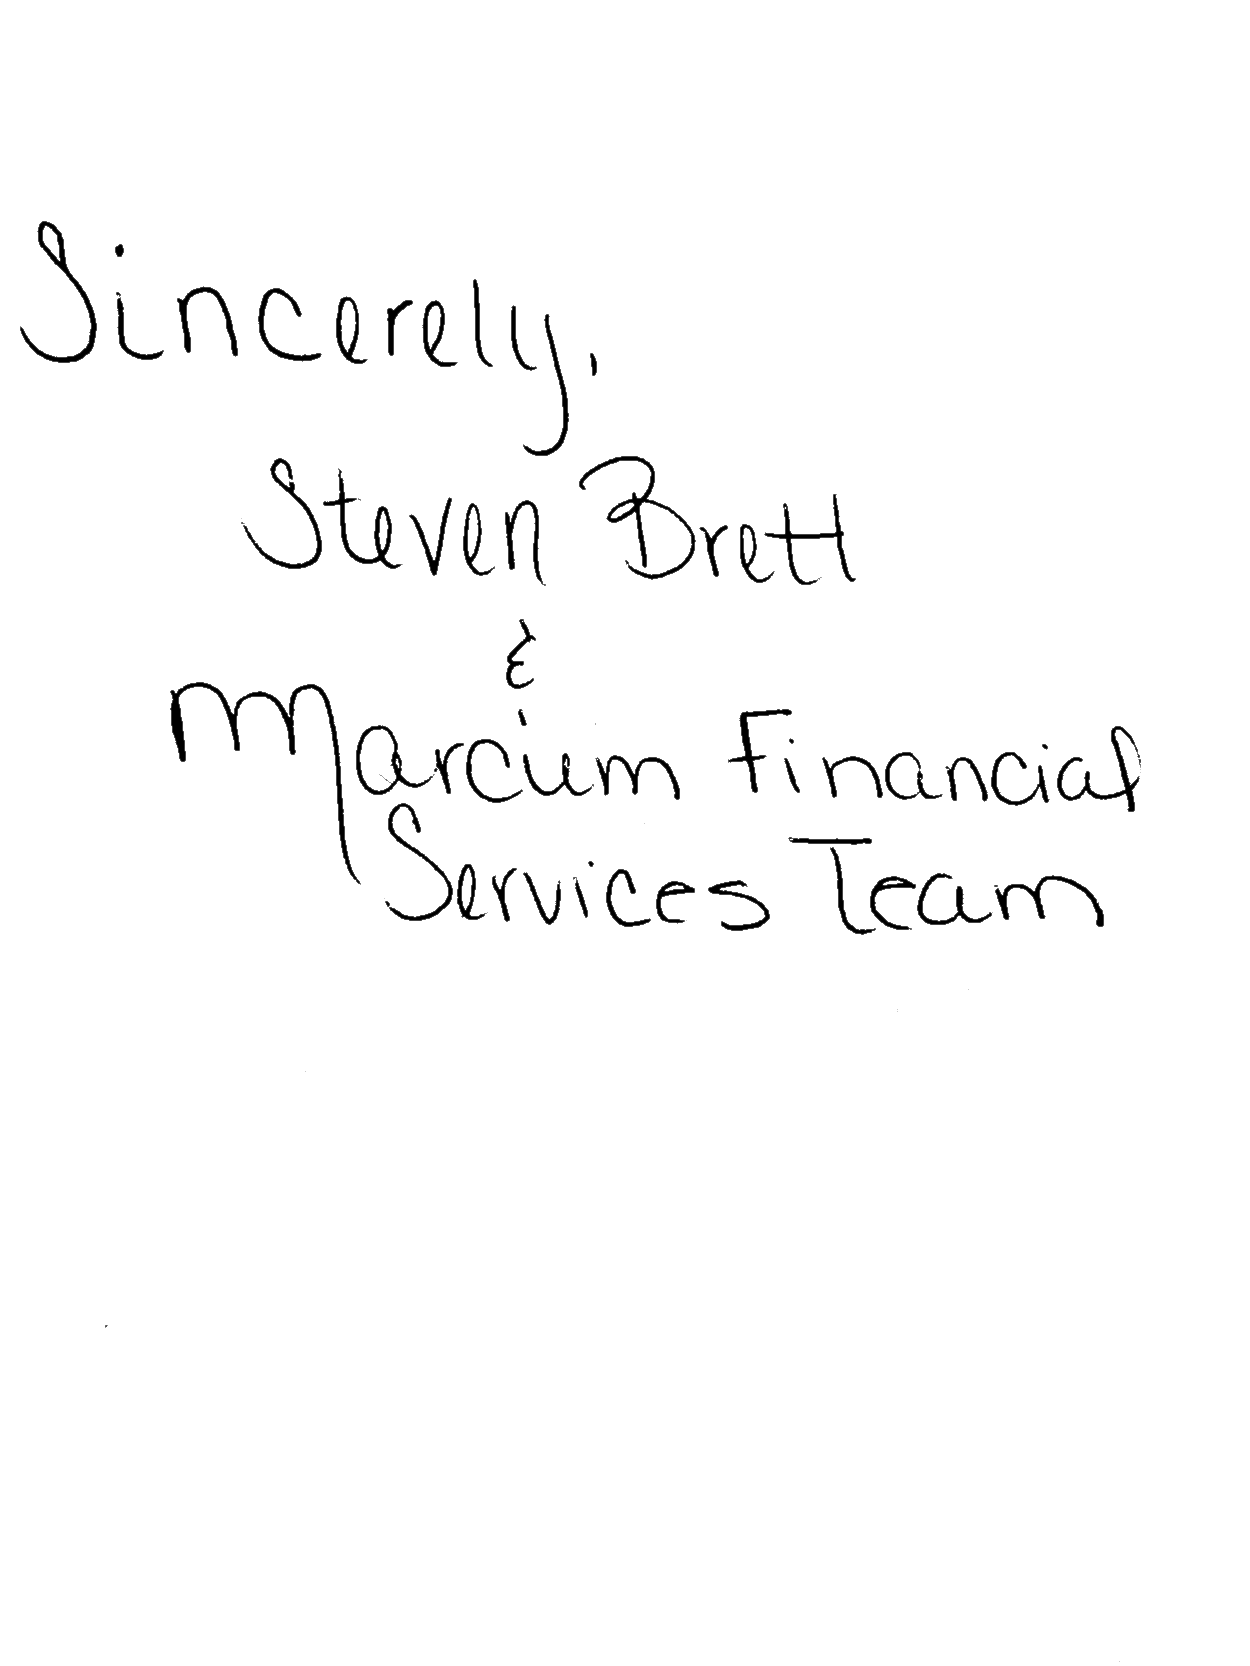 Sincerely,
Steven Brett
&
Marcum Financial
Services Team